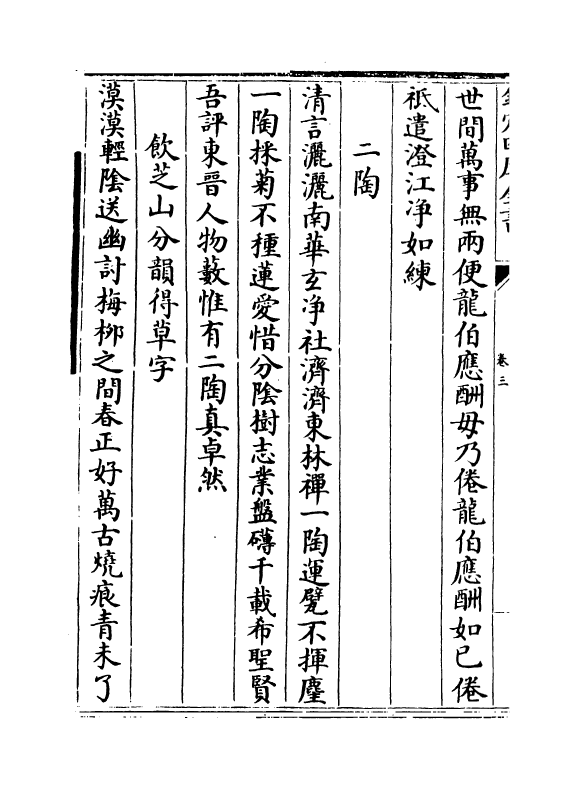 卷三
世間萬事無兩便龍伯應酬毋乃倦龍伯應酬如已倦
祇遣澄江净如練
二陶
清言灑灑南華玄净社濟濟東林禪一陶運甓不揮麈
一陶採菊不種蓮愛惜分陰樹志業盤礴千載希聖賢
吾評東晉人物藪惟有二陶真卓然
飲芝山分韻得草字
漠漠輕陰送幽討梅栁之間春正好萬古燒痕青未了